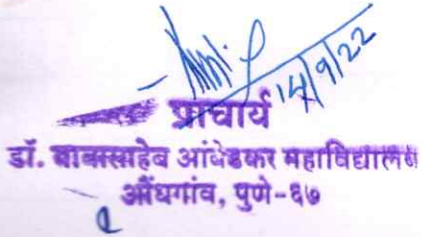 14/9/22
प्राचार्य
डॉ. बाबासाहेब आंबेडकर महाविद्यालय
औंधगांव, पुणे-६७